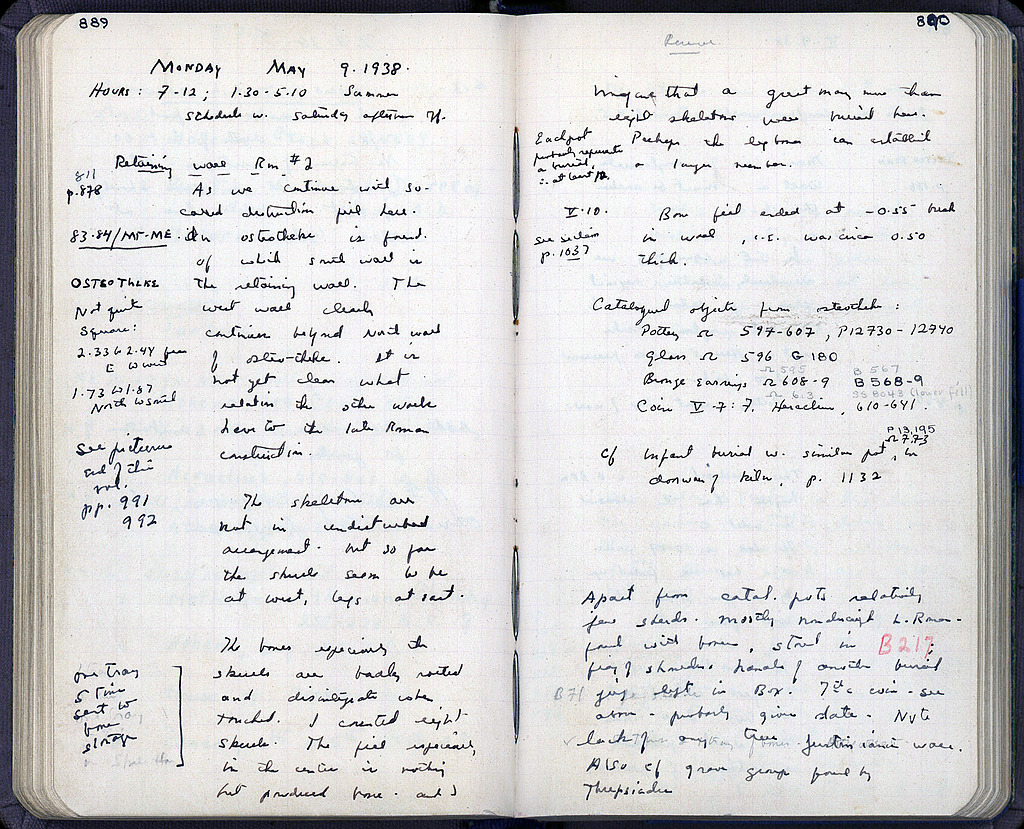 889
MONDAY MAY 9.1938.
HOURS: 7-12; 1.30-5.10 Summer
schedule w. Saturday afternoon off.
Retaining wall Rm #2
811
p.878
As we continue with so-
called destruction fill here.
83.84/ME-ME. An osteotheke is found.
of which south wall is
OSTEOTHEKE
the retaining wall. The
Not quite
square:
west wall clearly
continues beyond north wall
2.33 & 2.44
E W west
of osteo-theke. It is
not yet clear what
1.73 W 1.87
North W South
relation the other walls
have to the late Roman
construction.
See pictures
end of this
vol.
pp. 991
992
The skeletons are
not in undisturbed
arrangement. but so far
the skulls seem to be
at west, legs at east.
The bones especially the
skulls are badly rotted
and disintegrate when
touched. I counted eight
skulls. The fill especially
in the center is nothing
but produced bone. and I
tray
sent to
bone
storage
890
imagine that a great many more than
eight skeletons were buried here.
Perhaps the leg bones can establish
a larger number.
Each pot
probably represents
a burial,
∴ at least 12.
V.10. Bone fill ended at -0.55 break
in wall, i.e. was circa 0.50
thick.
see section
p. 1037
Catalogued objects from osteotheke:
Pottery Ω 597-607, P12730-12740
Glass Ω 596 G 180
Ω 595 B 567
Bronze Earrings Ω 608-9 B 568-9
Ω 613 SS 8043 (lower fill)
Coin V-7:7. Heraclius, 610-641.
P 13,195
Ω 773
cf infant burial w. similar pot, in
doorway of kiln, p. 1132
Apart from catal. pots relatively
few sherds. mostly nondescript L. Roman-
found with bones, stored in B217;
frag of shoulder & handle of another burial
B71 jug left in Box. 7th c coin - see
above - probably gives date. Note
lack of any true Justinianic ware.
Also cf grave group found by
Threpsiades